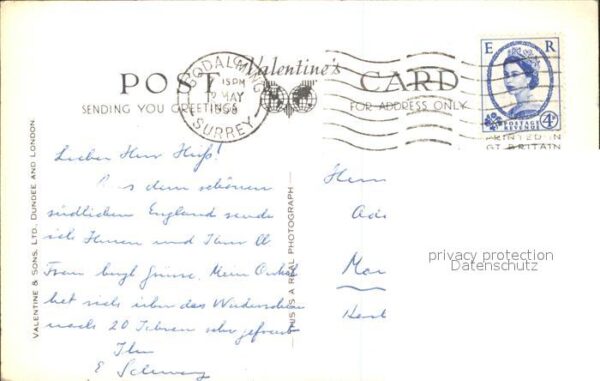 POST Valentine's CARD
SENDING YOU GREETINGS FOR ADDRESS ONLY
GODALMING
15PM
MAY
1958
SURREY
E R
POSTAGE
REVENUE
4D
PRINTED IN
GT BRITAIN
VALENTINE & SONS, LTD., DUNDEE AND LONDON.
THIS IS A REAL PHOTOGRAPH
Lieber Herr Huß!
Aus dem schönen
südlichen England sende
ich Ihnen und Ihrer
Frau hzgl Grüsse. Mein Onkel
hat sich über das Wiedersehen
nach 20 Jahren sehr gefreut
Ihr
E
Herrn
privacy protection
Datenschutz